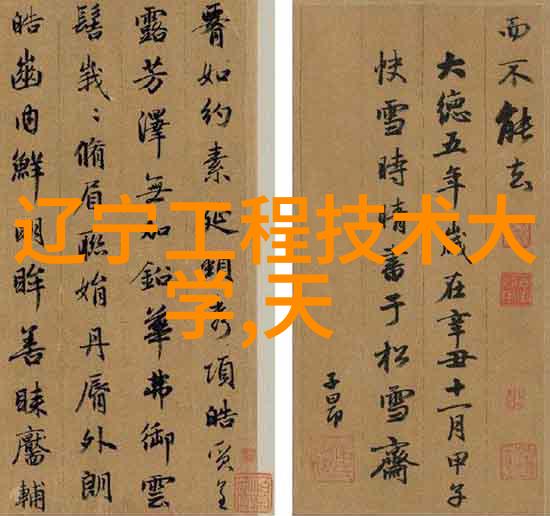 辽宁工程技术大
学,天
腰如約素延頸秀項皓質呈
露芳澤無加鉛華弗御雲
髻峩〻脩眉聯娟丹脣外朗
皓齒內鮮明眸善睞靨輔
而不能去
大德五年歲在辛丑十一月甲子
快雪時晴書于松雪齋
子昂